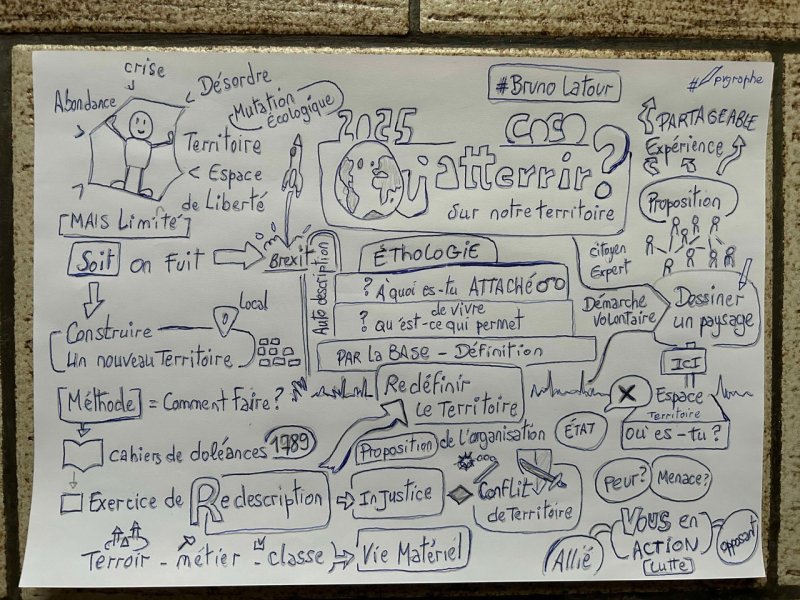 crise
Abondance
Désordre
Mutation
écologique
Territoire
Espace
de Liberté
MAIS Limité
Soit on Fuit
Brexit
Construire
un nouveau Territoire
Local
Méthode = Comment Faire?
cahiers de doléances 1789
Exercice de Redescription
Terroir - métier - classe
Vie Matériel
#Bruno Latour
2025
COSO
Où j'atterrir?
sur notre territoire
Auto description
ÉTHOLOGIE
? À quoi es-tu ATTACHÉ
de vivre
? qu'est-ce qui permet
PAR La BASE - Définition
Redéfinir
Le Territoire
Proposition de L'organisation
Injustice
Conflit
de Territoire
# pygraphe
PARTAGEABLE
Expérience
Proposition
citoyen
Expert
Démarche
volontaire
Dessiner
un paysage
ICI
Espace
Territoire
où es-tu?
ÉTAT
Peur?
Menace?
Vous en
ACTION
Lutte
Allié
opposant